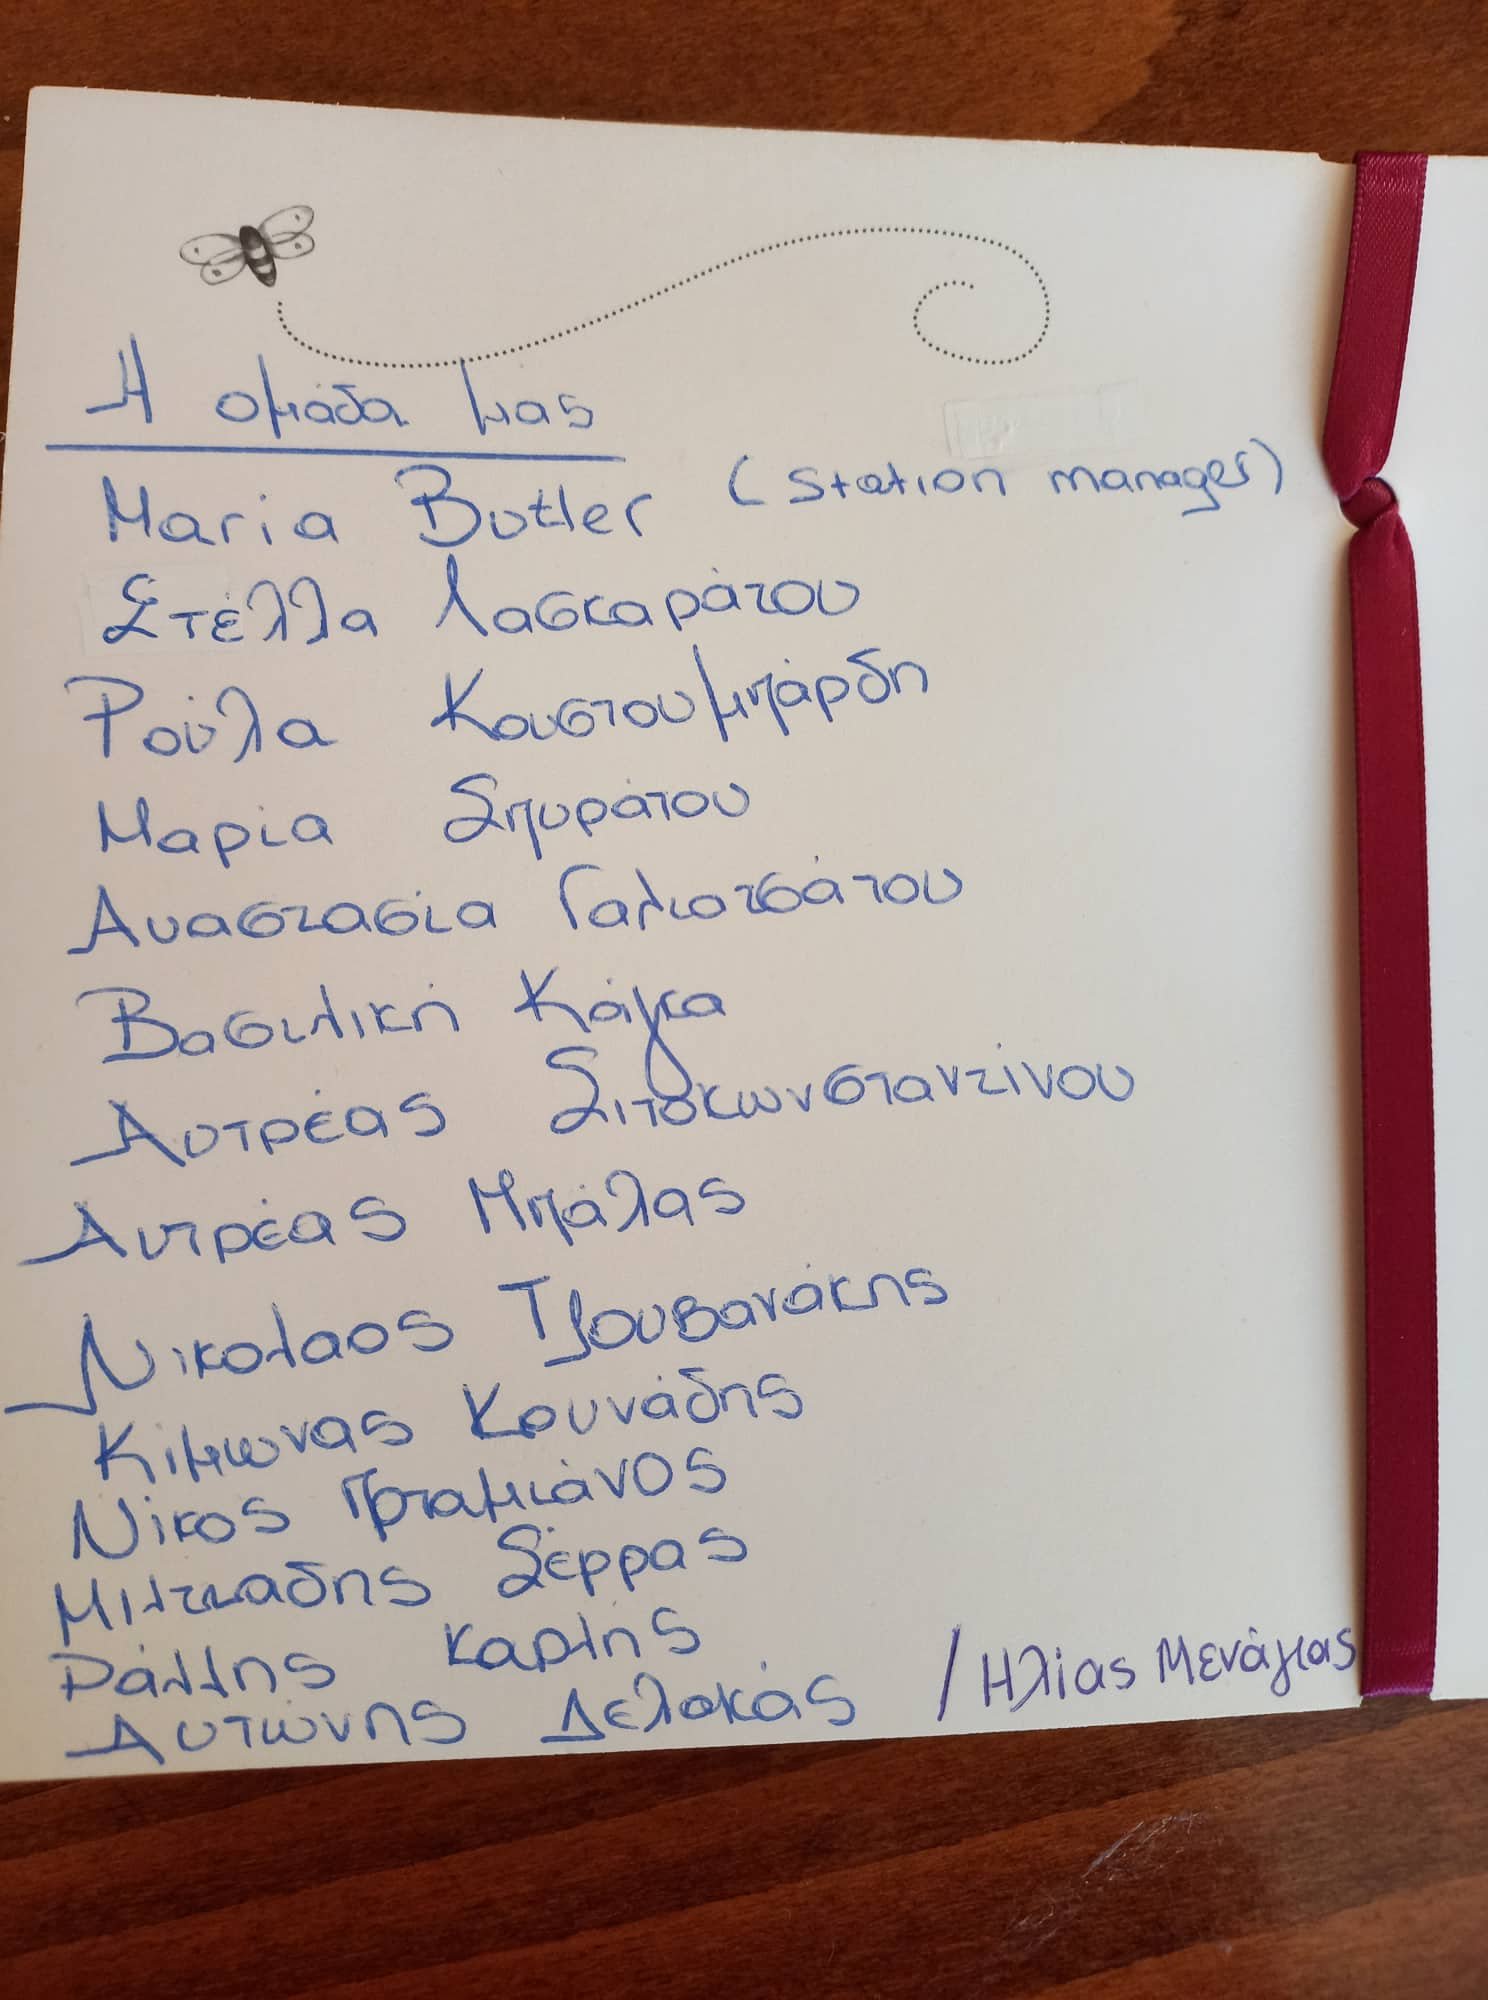 Η ομάδα μας
Maria Butler (station manager)
Στέλλα Λασκαράτου
Ρούλα Κουστουμπάρδη
Μαρία Σπυράτου
Αναστασία Γαλιατσάτου
Βασιλική Κάγκα
Αντρέας Σιτοκωνσταντίνου
Αντρέας Μπάλας
Νικολαος Τζουβανάκης
Κίμωνας Κουνάδης
Νίκος Πρταμιάνος
Μιλτιαδης Σέρρας
Ράλλης Καρλής
Αντώνης Δελακάς / Ηλίας Μενάγιας